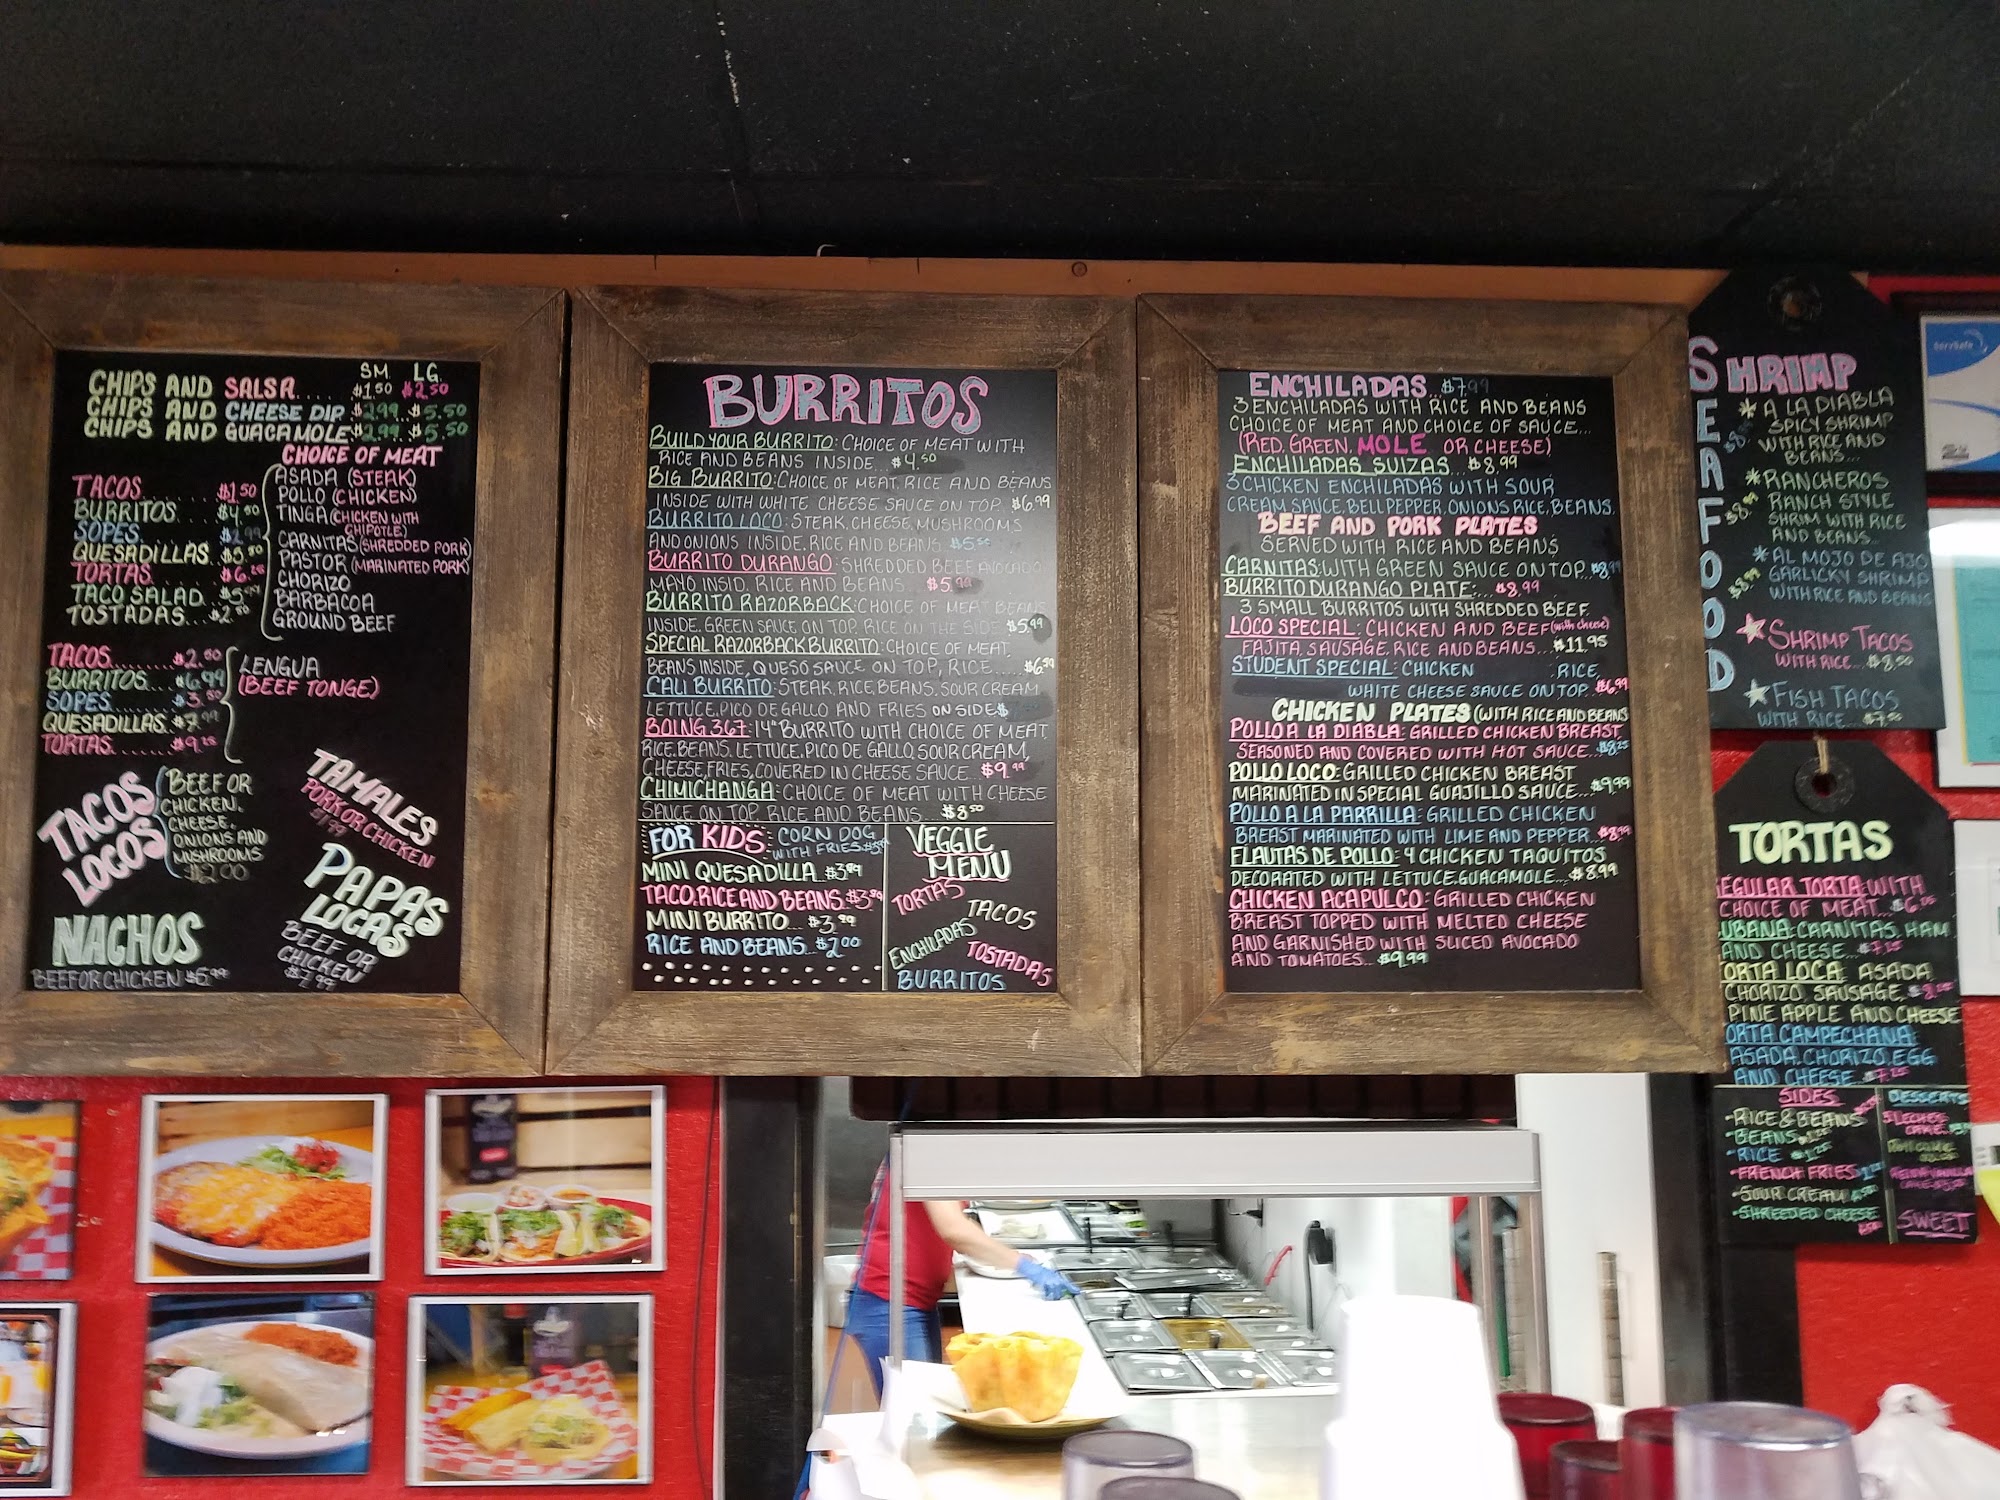 SM. LG.
CHIPS AND SALSA.... $1.50 $2.50
CHIPS AND CHEESE DIP. $2.99...$5.50
CHIPS AND GUACAMOLE $2.99...$5.50
CHOICE OF MEAT
TACOS...... $1.50
BURRITOS.... $4.50
SOPES........ $2.99
QUESADILLAS. $5.50
TORTAS....... $6.25
TACO SALAD.. $5.99
TOSTADAS... $2.50
ASADA (STEAK)
POLLO (CHICKEN)
TINGA (CHICKEN WITH
CHIPOTLE)
CARNITAS (SHREDDED PORK)
PASTOR (MARINATED PORK)
CHORIZO
BARBACOA
GROUND BEEF
TACOS........ $2.50
BURRITOS... $6.99
SOPES....... $3.50
QUESADILLAS. $7.99
TORTAS....... $9.25
LENGUA
(BEEF TONGE)
TACOS
LOCOS
BEEF OR
CHICKEN.
CHEESE.
ONIONS AND
MUSHROOMS
$2.00
TAMALES
PORK OR CHICKEN
$1.99
PAPAS
LOCAS
BEEF OR
CHICKEN
$7.99
NACHOS
BEEF OR CHICKEN $6.99
BURRITOS
BUILD YOUR BURRITO: CHOICE OF MEAT WITH
RICE AND BEANS INSIDE... $4.50
BIG BURRITO: CHOICE OF MEAT, RICE AND BEANS
INSIDE WITH WHITE CHEESE SAUCE ON TOP. $6.99
BURRITO LOCO: STEAK, CHEESE, MUSHROOMS
AND ONIONS INSIDE. RICE AND BEANS. $5.50
BURRITO DURANGO: SHREDDED BEEF AVOCADO
MAYO INSID, RICE AND BEANS... $5.99
BURRITO RAZORBACK: CHOICE OF MEAT BEANS
INSIDE. GREEN SAUCE ON TOP. RICE ON THE SIDE. $5.99
SPECIAL RAZORBACK BURRITO: CHOICE OF MEAT,
BEANS INSIDE, QUESO SAUCE ON TOP, RICE..... $6.50
CALI BURRITO: STEAK, RICE, BEANS, SOUR CREAM
LETTUCE, PICO DE GALLO AND FRIES ON SIDE $
BOING 367: 14" BURRITO WITH CHOICE OF MEAT,
RICE, BEANS, LETTUCE, PICO DE GALLO, SOUR CREAM,
CHEESE, FRIES, COVERED IN CHEESE SAUCE.. $9.99
CHIMICHANGA: CHOICE OF MEAT WITH CHEESE
SAUCE ON TOP. RICE AND BEANS... $8.50
FOR KIDS: CORN DOG
WITH FRIES
MINI QUESADILLA... $3.99
TACO, RICE AND BEANS. $3.50
MINI BURRITO... $3.99
RICE AND BEANS... $2.00
VEGGIE
MENU
TORTAS
TACOS
ENCHILADAS
TOSTADAS
BURRITOS
ENCHILADAS...$7.99
3 ENCHILADAS WITH RICE AND BEANS
CHOICE OF MEAT AND CHOICE OF SAUCE...
(RED, GREEN, MOLE OR CHEESE)
ENCHILADAS SUIZAS...$8.99
3 CHICKEN ENCHILADAS WITH SOUR
CREAM SAUCE, BELL PEPPER, ONIONS RICE, BEANS.
BEEF AND PORK PLATES
SERVED WITH RICE AND BEANS
CARNITAS: WITH GREEN SAUCE ON TOP...$8.99
BURRITO DURANGO PLATE:...$8.99
3 SMALL BURRITOS WITH SHREDDED BEEF.
LOCO SPECIAL: CHICKEN AND BEEF (with cheese)
FAJITA, SAUSAGE, RICE AND BEANS... $11.95
STUDENT SPECIAL: CHICKEN RICE,
WHITE CHEESE SAUCE ON TOP..$6.99
CHICKEN PLATES (WITH RICE AND BEANS
POLLO A LA DIABLA: GRILLED CHICKEN BREAST,
SEASONED AND COVERED WITH HOT SAUCE...$8.25
POLLO LOCO: GRILLED CHICKEN BREAST
MARINATED IN SPECIAL GUAJILLO SAUCE...$9.99
POLLO A LA PARRILLA: GRILLED CHICKEN
BREAST MARINATED WITH LIME AND PEPPER...$8.99
FLAUTAS DE POLLO: 4 CHICKEN TAQUITOS
DECORATED WITH LETTUCE, GUACAMOLE...$8.99
CHICKEN ACAPULCO: GRILLED CHICKEN
BREAST TOPPED WITH MELTED CHEESE
AND GARNISHED WITH SLICED AVOCADO
AND TOMATOES... $9.99
SEAFOOD
SHRIMP
* A LA DIABLA
SPICY SHRIMP
WITH RICE AND
BEANS...
$8.99
* RANCHEROS
RANCH STYLE
SHRIM WITH RICE
AND BEANS...
$8.99
* AL MOJO DE AJO
GARLICKY SHRIMP
WITH RICE AND BEANS
$8.99
SHRIMP TACOS
WITH RICE...$8.50
FISH TACOS
WITH RICE...$7.50
ServSafe
TORTAS
EGULAR TORTA: WITH
CHOICE OF MEAT...$6.25
UBANA: CARNITAS, HAM
AND CHEESE...$7.25
ORTA LOCA: ASADA,
CHORIZO, SAUSAGE, $8.25
PINE APPLE AND CHEESE
ORTA CAMPECHANA:
ASADA, CHORIZO, EGG
AND CHEESE..$7.25
SIDES
•RICE & BEANS
•BEANS $1.25
•RICE $1.25
•FRENCH FRIES
•SOUR CREAM
•SHREEDED CHEESE
DESSERTS
3 LECHES
CAKE
SWEET